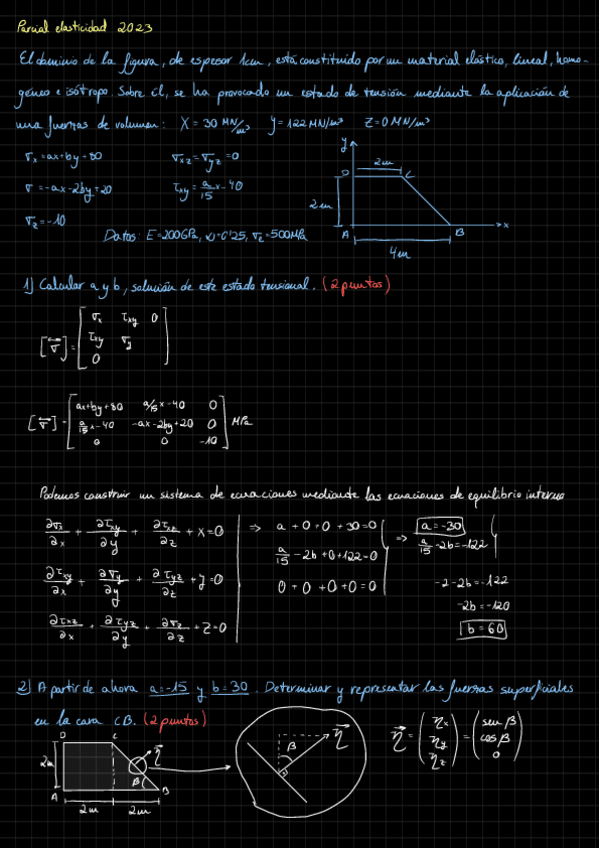 Parcial elasticidad 2023
El dominio de la figura, de espesor 1cm, está constituido por un material elástico, lineal, homo-
géneo e isótropo. Sobre él, se ha provocado un estado de tensión mediante la aplicación de
una fuerzas de volumen: X = 30 MN/m³ Y = 122 MN/m³ Z = 0 MN/m³
σx = ax+by-80 σxz = σyz = 0
σ = -ax-2by+20 τxy = a/15 x - 40
σz = -10
Datos: E = 200GPa, ν = 0'25, σe = 500MPa
y D 2m C
2m
A B x
4m
1) Calcular a y b, solución de este estado tensional. (2 puntos)
[σ] = [ σx τxy 0
τxy σy
0 ]
[σ] = [ ax+by+80 a/15 x-40 0
a/15 x-40 -ax-2by+20 0
0 0 -10 ] MPa
Podemos construir un sistema de ecuaciones mediante las ecuaciones de equilibrio interno
∂σx/∂x + ∂τxy/∂y + ∂τxz/∂z + X = 0 ⇒ a + 0 + 0 + 30 = 0 ⇒ a = -30
∂τxy/∂x + ∂σy/∂y + ∂τyz/∂z + Y = 0 a/15 - 2b + 0 + 122 = 0 a/15 - 2b = -122
∂τxz/∂x + ∂τyz/∂y + ∂σz/∂z + Z = 0 0 + 0 + 0 + 0 = 0 -2 - 2b = -122
-2b = -120
b = 60
2) A partir de ahora a = -15 y b = 30. Determinar y representar las fuerzas superficiales
en la cara CB. (2 puntos)
D C η
2m β
A B
2m 2m
β η
η = ( ηx ηy ηz ) = ( sen β cos β 0 )